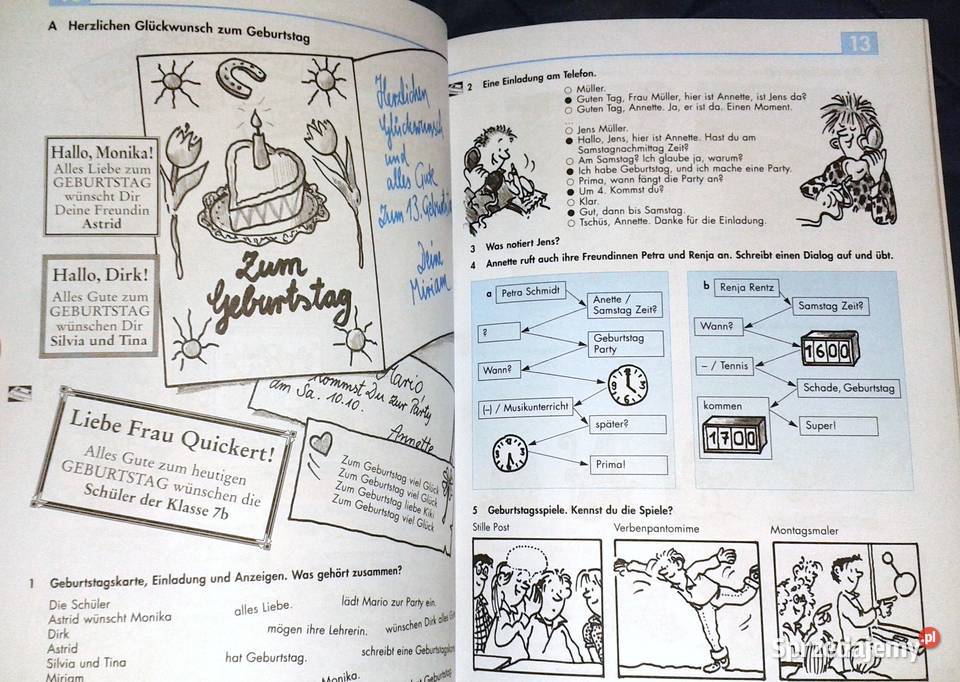 A Herzlichen Glückwunsch zum Geburtstag
Herzlichen
Glückwunsch
und
alles Gute
zum 13. Geburtstag
Deine
Miriam
Zum
Geburtstag
Hallo, Monika!
Alles Liebe zum
GEBURTSTAG
wünscht Dir
Deine Freundin
Astrid
Hallo, Dirk!
Alles Gute zum
GEBURTSTAG
wünschen Dir
Silvia und Tina
Mario,
kommst Du zur Party
am Sa. 10.10.
Annette
Liebe Frau Quickert!
Alles Gute zum heutigen
GEBURTSTAG wünschen die
Schüler der Klasse 7b
Zum Geburtstag viel Glück
Zum Geburtstag viel Glück
Zum Geburtstag liebe Kiki
Zum Geburtstag viel Glück
1 Geburtstagskarte, Einladung und Anzeigen. Was gehört zusammen?
Die Schüler alles Liebe. lädt Mario zur Party ein.
Astrid wünscht Monika
Dirk mögen ihre Lehrerin. wünschen Dirk alles
Astrid
Silvia und Tina hat Geburtstag. schreibt eine
Miriam Monika.
13
2 Eine Einladung am Telefon.
○ Müller.
● Guten Tag, Frau Müller, hier ist Annette, ist Jens da?
○ Guten Tag, Annette. Ja, er ist da. Einen Moment.
...
○ Jens Müller.
● Hallo, Jens, hier ist Annette. Hast du am
Samstagnachmittag Zeit?
○ Am Samstag? Ich glaube ja, warum?
● Ich habe Geburtstag, und ich mache eine Party.
○ Prima, wann fängt die Party an?
● Um 4. Kommst du?
○ Klar.
● Gut, dann bis Samstag.
○ Tschüs, Annette. Danke für die Einladung.
3 Was notiert Jens?
4 Annette ruft auch ihre Freundinnen Petra und Renja an. Schreibt einen Dialog auf und übt.
a Petra Schmidt
Anette /
Samstag Zeit?
?
Geburtstag
Party
Wann?
12
9 3
6
(–) / Musikunterricht
später?
12
9 3
6
Prima!
b Renja Rentz
Samstag Zeit?
Wann?
1600
– / Tennis
Schade, Geburtstag
kommen
1700
Super!
5 Geburtstagsspiele. Kennst du die Spiele?
Stille Post Verbenpantomime Montagsmaler
Sprzedajemy.pl